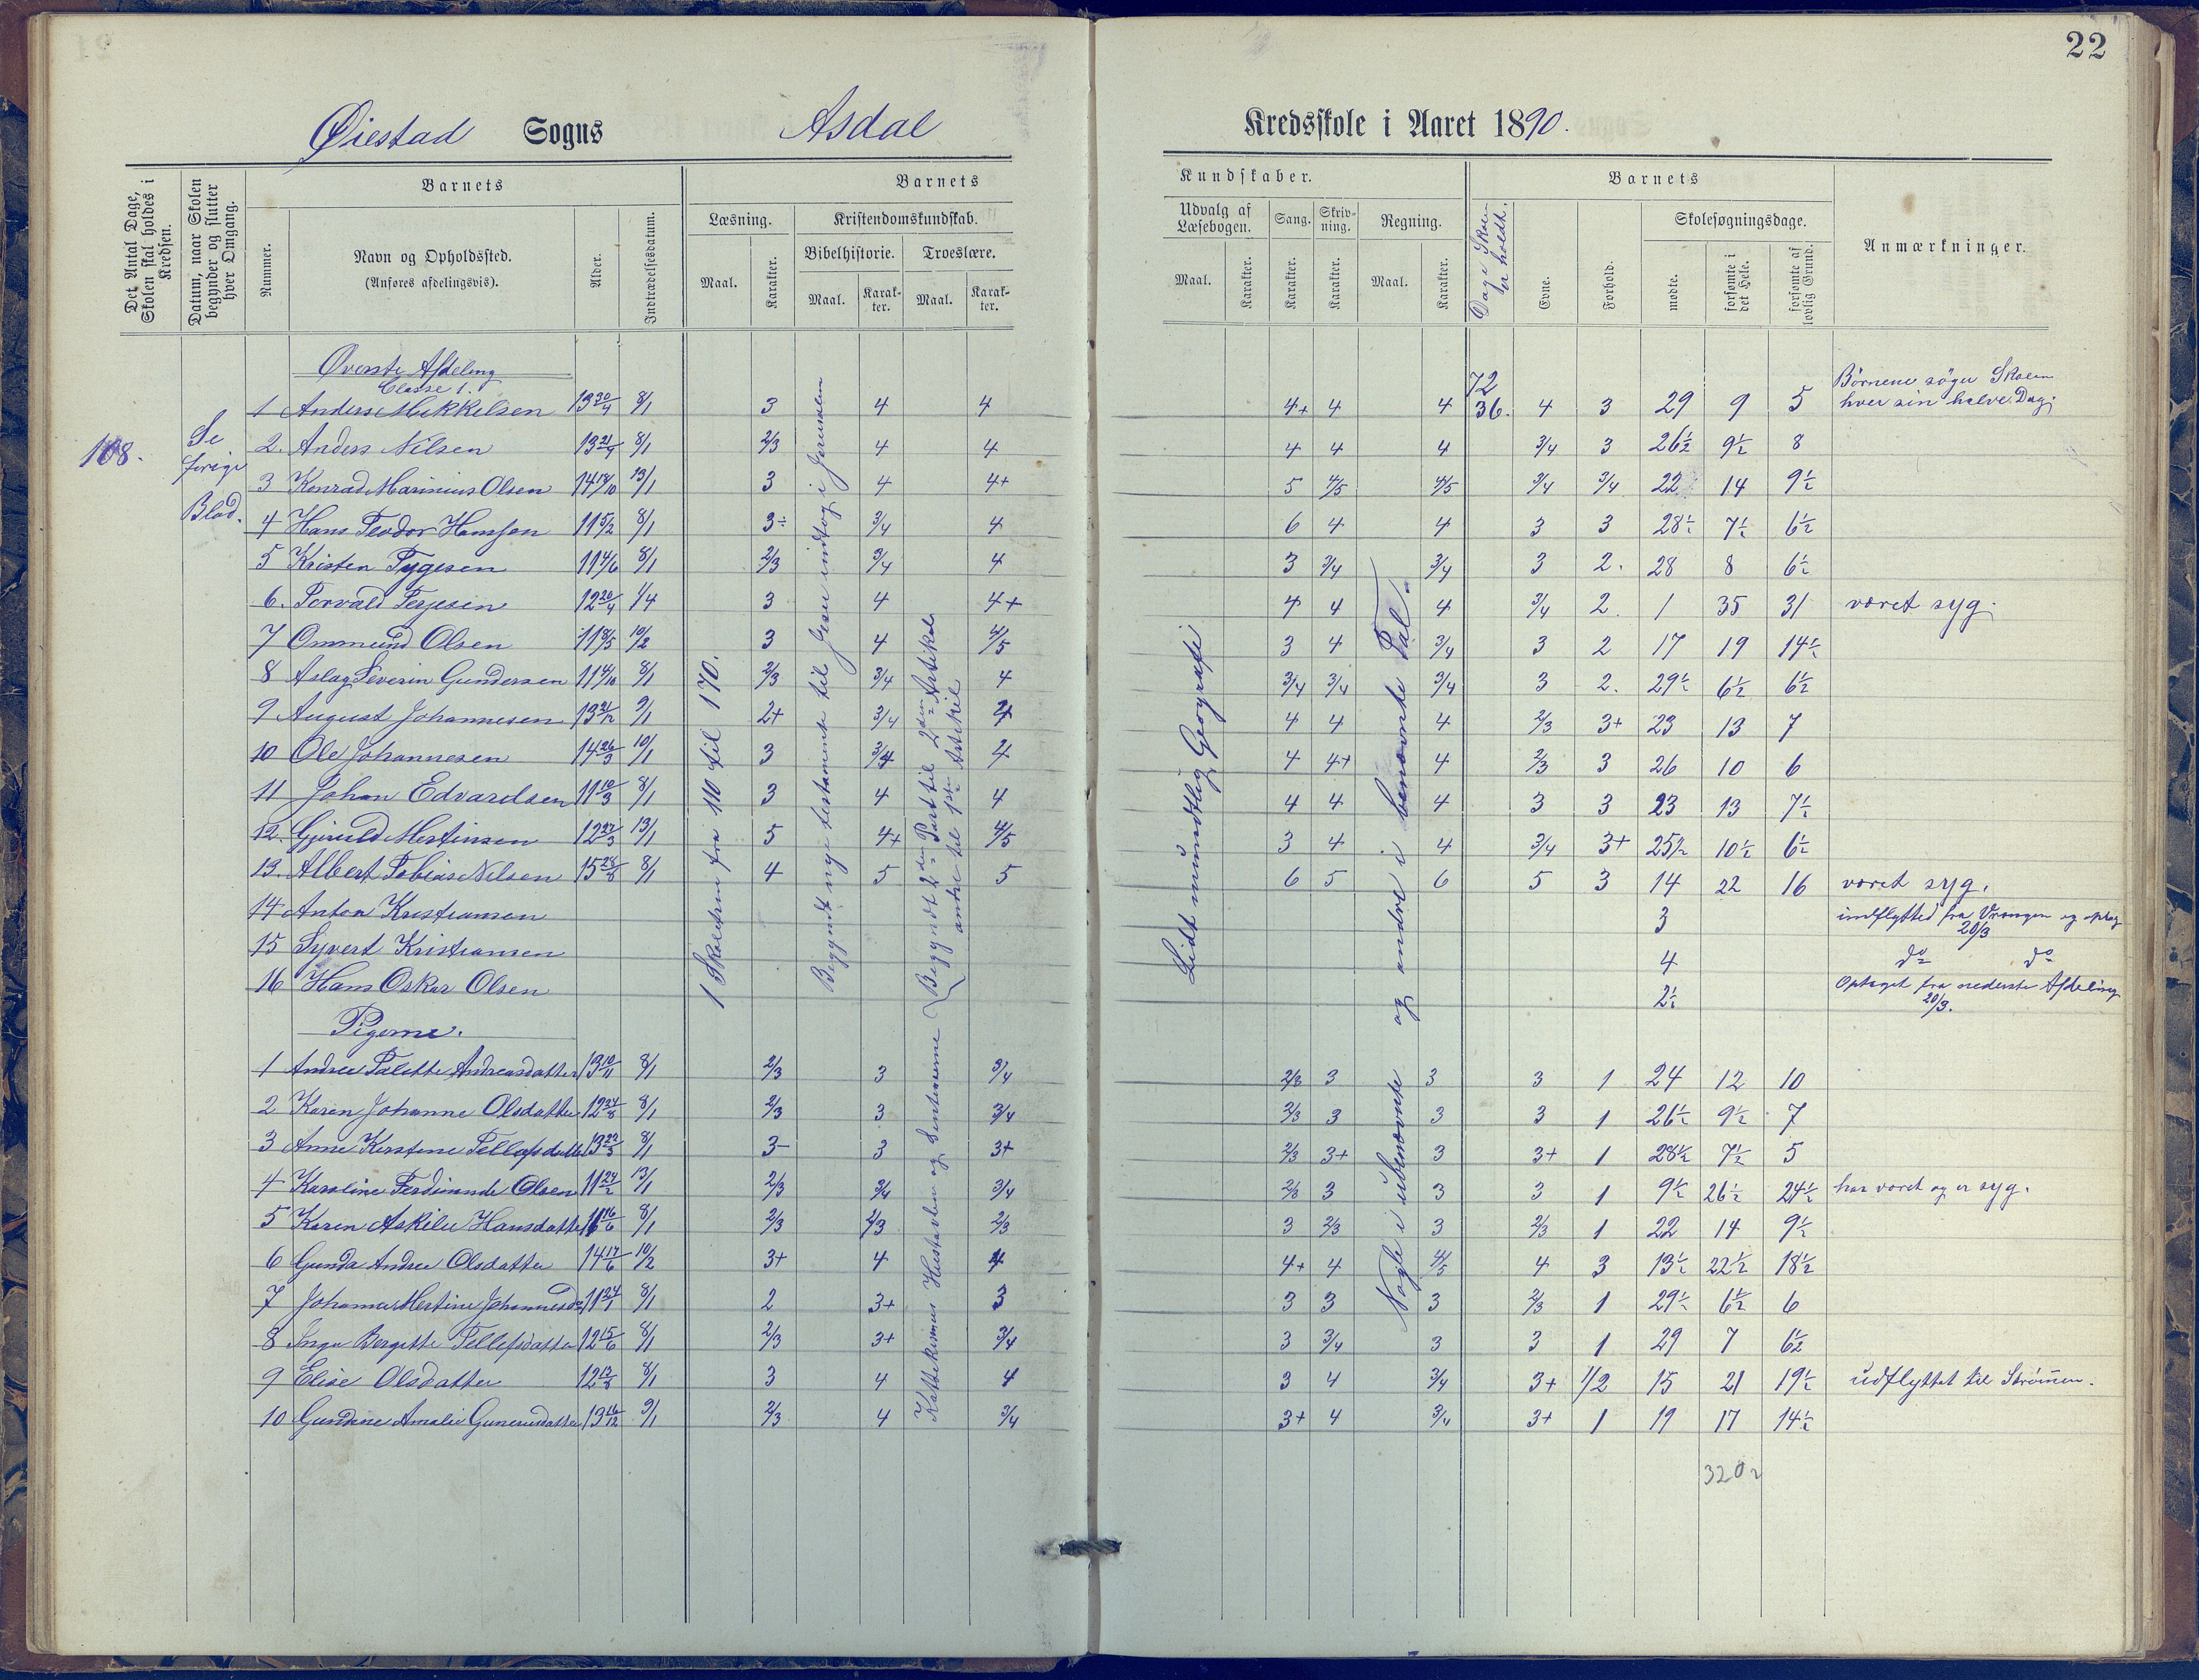 22
Øiestad Sogns Asdal Kredsskole i Aaret 1890.
Det Antal Dage, Skolen skal holdes i Kredsen.
Datum, naar Skolen begynder og slutter hver Omgang.
Barnets
Nummer.
Navn og Opholdssted.
(Anføres afdelingsvis).
Alder.
Indtrædelsesdatum.
Barnets
Læsning.
Maal.
Karakter.
Kristendomskundskab.
Bibelhistorie.
Maal.
Karakter.
Troeslære.
Maal.
Karakter.
Kundskaber.
Udvalg af Læsebogen.
Maal.
Karakter.
Sang.
Karakter.
Skrivning.
Karakter.
Regning.
Maal.
Karakter.
Dage Skolen er holdt.
Barnets
Evne.
Forhold.
Skolesøgningsdage.
mødte.
forsømte i det Hele.
forsømte af lovlig Grund.
Anmærkninger.
108.
Se forige Blad.
Øverste Afdeling
Classe 1.
72
1 Anders Mikkelsen 13 30/4 8/1 3 4 4 4+ 4 4 36. 4 3 29 9 5 Børnene søger Skolen hver sin halve Dag.
2. Anders Nilsen 13 21/4 8/1 2/3 4 4 4 4 4 3/4 3 26½ 9½ 8
3 Konrad Marinius Olsen 14 18/10 13/1 3 4 4+ 5 4/5 4/5 3/4 3/4 22 14 9½
4 Hans Teodor Hansen 11 5/2 8/1 3÷ 3/4 4 6 4 4 3 3 28½ 7½ 6½
5 Kristen Tygesen 11 4/6 8/1 2/3 3/4 4 3 3/4 3/4 3 2. 28 8 6½
6. Torvald Terjesen 12 20/4 1/4 3 4 4+ 4 4 4 3/4 2. 1 35 31 været syg.
7 Ommund Olsen 11 8/5 10/2 3 4 4/5 3 4 3/4 3 2 17 19 14½
8 Aslag Severin Gundersen 11 4/10 8/1 2/3 3/4 4 3/4 3/4 3/4 3 2. 29½ 6½ 6½
9 August Johannesen 13 21/12 9/1 2+ 3/4 4 4 4 4 2/3 3+ 23 13 7
10 Ole Johannesen 14 26/3 10/1 3 3/4 4 4 4+ 4 2/3 3 26 10 6
11 Johan Edvardsen 11 10/3 8/1 3 4 4 4 4 4 3 3 23 13 7½
12. Gjeruld Mertinsen 12 27/3 13/1 5 4+ 4/5 3 4 4 3/4 3+ 25½ 10½ 6½
13. Albert Tobias Nilsen 15 28/8 8/1 4 5 5 6 5 6 5 3 14 22 16 været syg.
14 Anton Kristiansen 3 indflytted fra Vrangen og optag 20/3
15 Syvert Kristiansen 4 do do
16 Hans Oskar Olsen 2½ Optaget fra nederste Afdeling 20/3.
Pigerne.
1 Andrea Talette Andreasdatter 13 10/11 8/1 2/3 3 3/4 2/3 3 3 3 1 24 12 10
2 Karen Johanne Olsdatter 12 24/8 8/1 2/3 3 3/4 2/3 3 3 3 1 26½ 9½ 7
3 Anne Kirstine Tellefsdatter 13 22/3 8/1 3- 3 3+ 2/3 3+ 3 3+ 1 28½ 7½ 5
4 Karoline Ferdinande Olsen 11 24/2 13/1 2/3 3/4 3/4 2/3 3 3 3 1 9½ 26½ 24½ har været og er syg.
5 Karen Askilie Hansdatter 11 16/6 8/1 2/3 2/3 2/3 3 2/3 3 2/3 1 22 14 9½
6 Gunda Andrea Olsdatter 14 17/6 10/2 3+ 4 4 4+ 4 4/5 4 3 13½ 22½ 18½
7 Johanne Mertine Johannesd. 11 24/1 8/1 2 3+ 3 3 3 3 2/3 1 29½ 6½ 6
8 Inga Bergitte Tellefsdatter 12 15/6 8/1 2/3 3+ 3/4 3 3/4 3 3 1 29 7 6½
9 Elise Olsdatter 12 13/8 8/1 3 4 4 3 4 3/4 3+ 1/2 15 21 19½ udflyttet til Strømmen.
10 Gundine Amalie Gunerusdatter 13 16/12 9/1 2/3 4 3/4 3+ 4 3/4 3+ 1 19 17 14½
320½
I Skoletren fra 110 til 170.
Begyndt nye testamente til Jesu indtog i Jerusalem
Kattekismus Hustavlen og Sentenserne
Begyndt 2den Part til 2den Artikel
andre til 1ste Artikel
Lidt mundtlig Geografi
Nogle i ubenævnte og andre i benævnte Tal.